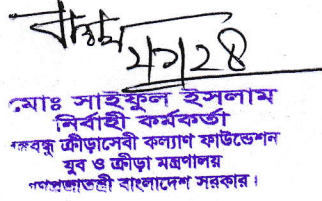 মোঃ সাইফুল ইসলাম
নির্বাহী কর্মকর্তা
বঙ্গবন্ধু ক্রীড়াসেবী কল্যাণ ফাউন্ডেশন
যুব ও ক্রীড়া মন্ত্রণালয়
গণপ্রজাতন্ত্রী বাংলাদেশ সরকার।